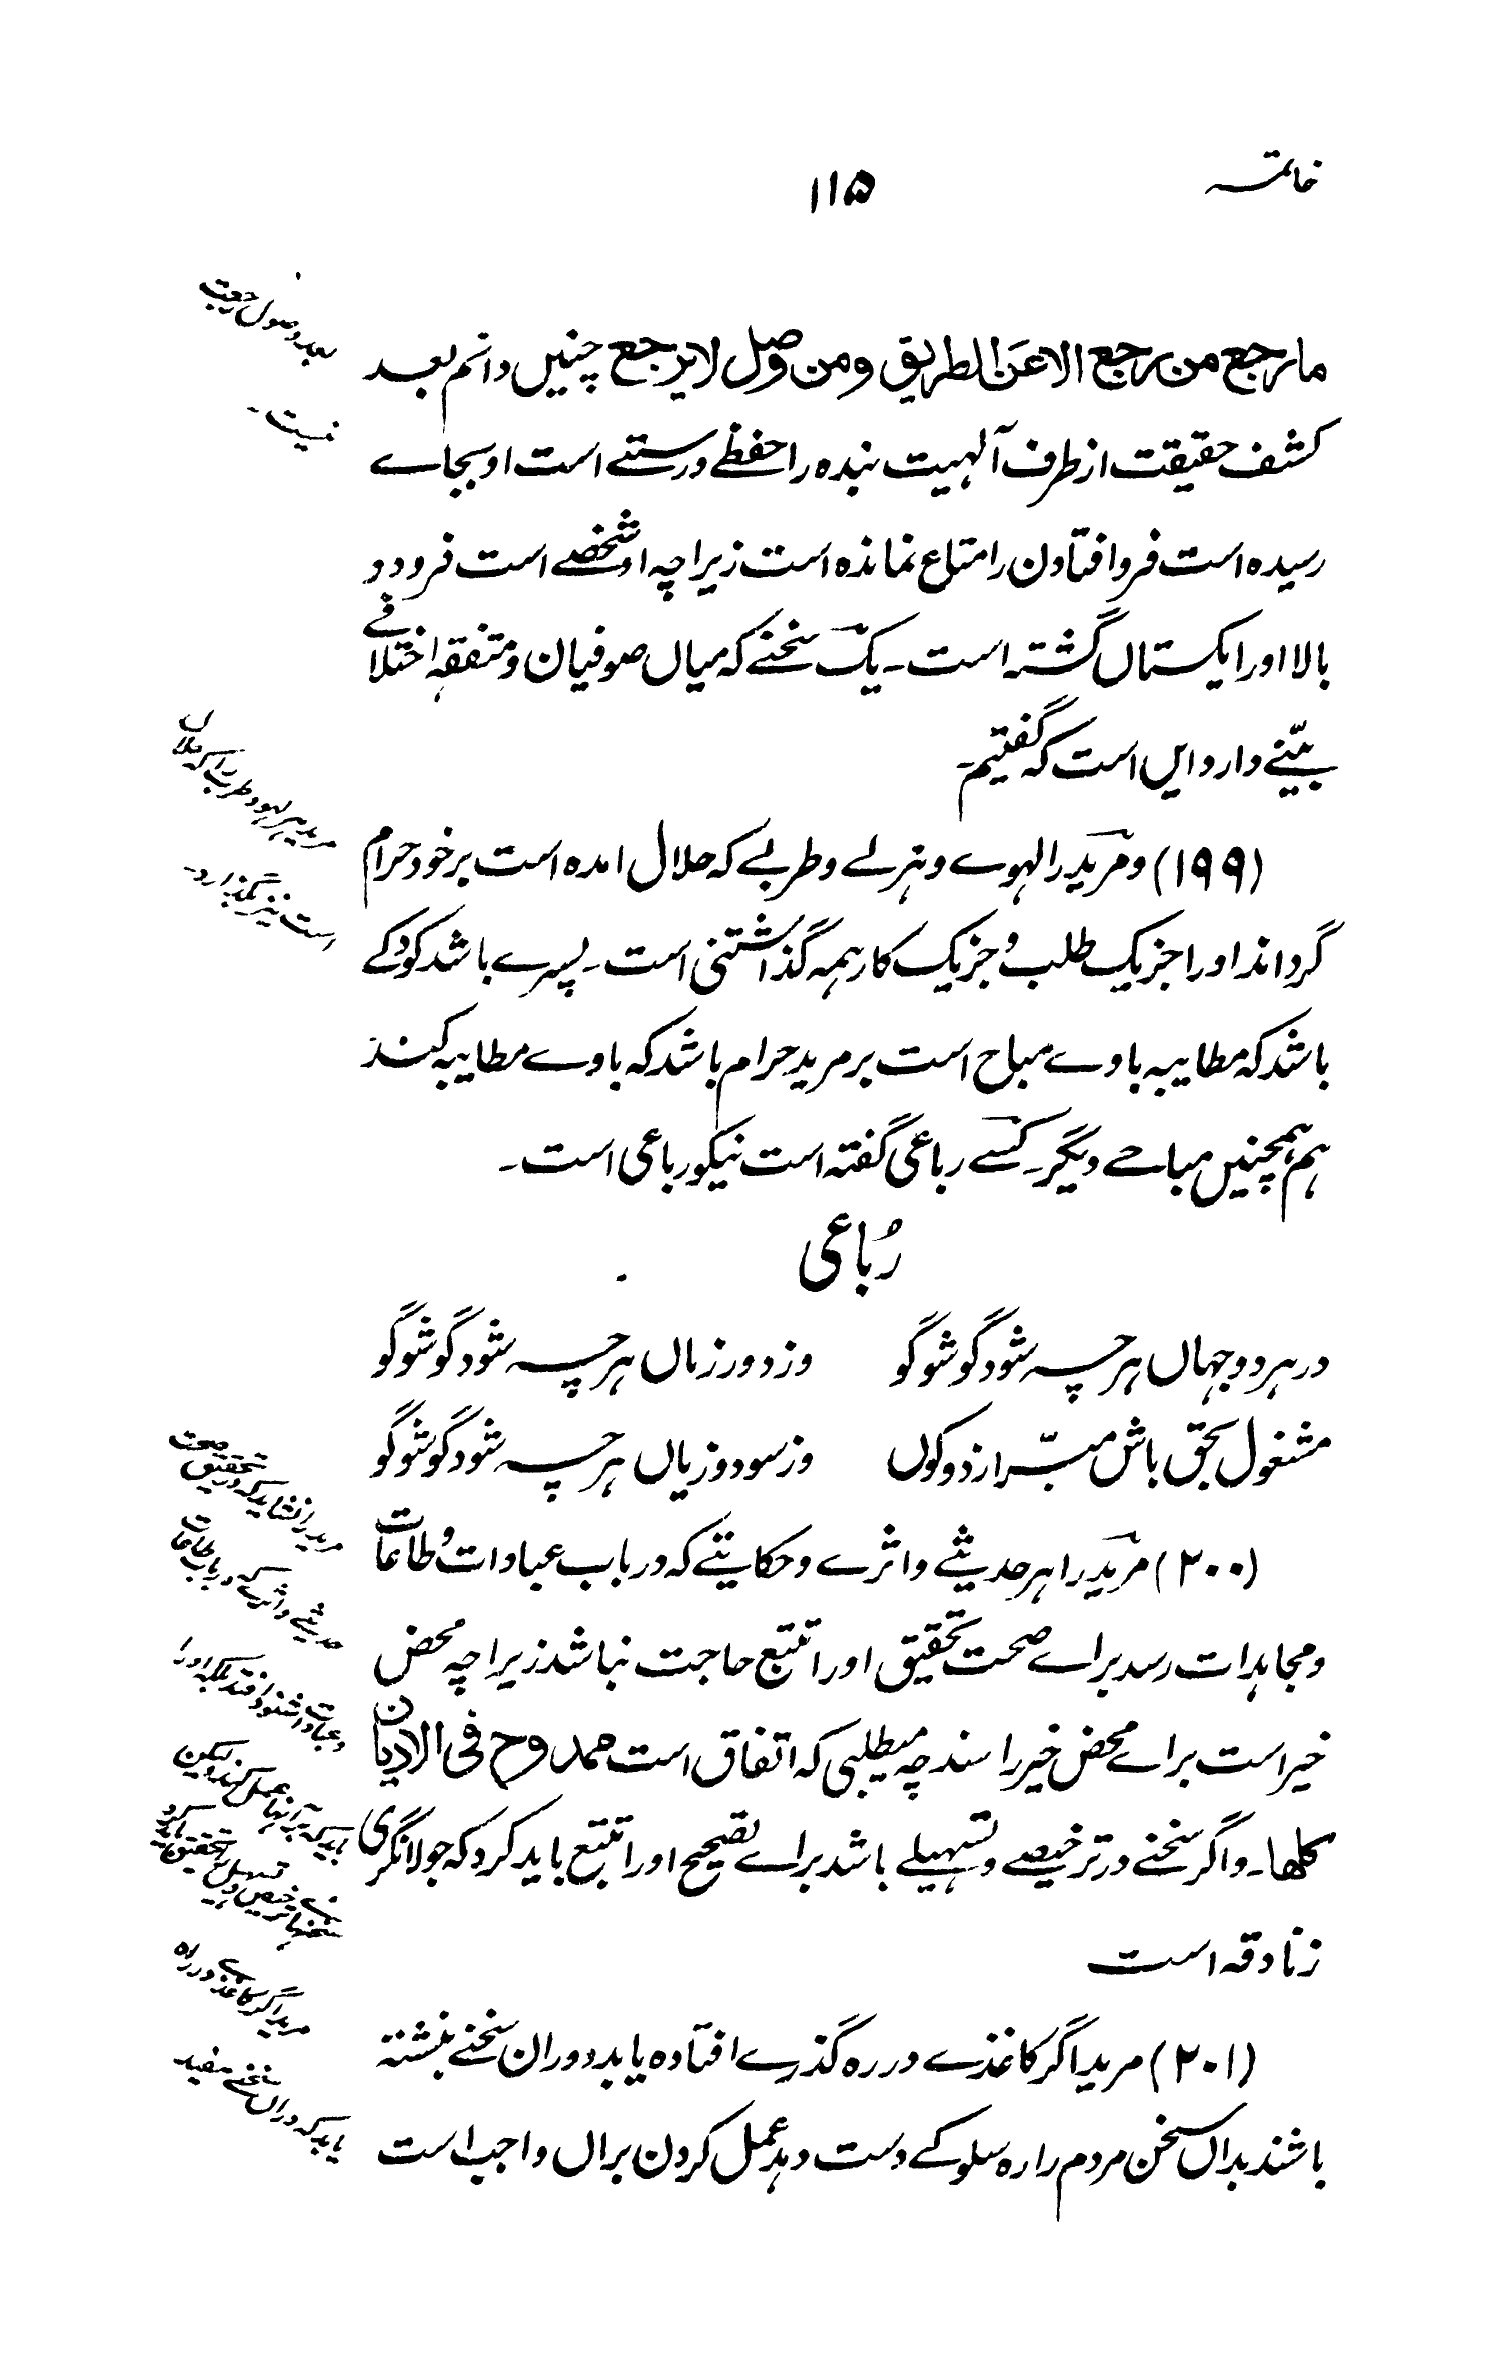 خاتمہ
۱۱۵
مارجع من یرجع الا عن الطریق ومن وصل لا یرجع چنیں دانم بعد
کشف حقیقت از طرف آلہیت بندہ را حفظے ورستے است او بجاے
رسیدہ است فروافتادن را متاع نماندہ است زیراچہ او شخصے است فرود و
بالا او را یکستاں گشتہ است۔ یک سخنے کہ میاں صوفیان و متفقہ اختلافے
بیّنے دارد ایں است کہ گفتیم۔
بعد وصول رجعت
نیست۔
(۱۹۹) و مرید را لہوے و ہزلے و طربے کہ حلال امدہ است بر خود حرام
گرداند او را جز یک طلب و جز یک کار ہمہ گذاشتنی است۔ پسرے باشد کودکے
باشد کہ مطایبہ باوے مباح است بر مرید حرام باشد کہ باوے مطایبہ کند
ہم ہمچنیں مباحے دیگر۔ کسے رباعی گفتہ است نیکو رباعی است۔
مرید ہر لہو و طرب را کہ حلال
است نیز بگذارد۔
رُباعی
در ہر دو جہاں ہرچہ شود گو شو گو وز دور زماں ہرچہ شود گو شو گو
مشغول بحق باش مبّرا ز دو کوں وز سود و زیاں ہرچہ شود گو شو گو
(۲۰۰) مرید را ہر حدیثے و اثرے و حکایتے کہ در باب عبادات و طاعات
ومجاہدات رسد براے صحت تحقیق او را تتبع حاجت نباشد زیراچہ محض
خیر است براے محض خیر را سند چہ میطلبی کہ اتفاق است ممدوح فی الادیان
کلھا۔ و اگر سخنے در ترخیصے و تسہیلے باشد براے تصحیح او را تتبع باید کرد کہ جولانگری
زنادقہ است
مرید را نشاید کہ در تحقیق صحت
حدیثے و اثرے کہ در باب طاعات
و عبادات شنود افتد بلکہ او را
باید کہ بر آنہا عمل کند ولیکن
(۲۰۱) مرید اگر کاغذے در رہ گذرے افتادہ یابد و دوران سخنے بنشتہ
باشند بداں سخن مردم را رہ سلوکے دست دہد عمل کردن براں واجب است
مرید اگر کاغذے در راہ
یابد کہ دراں سخنے مفید